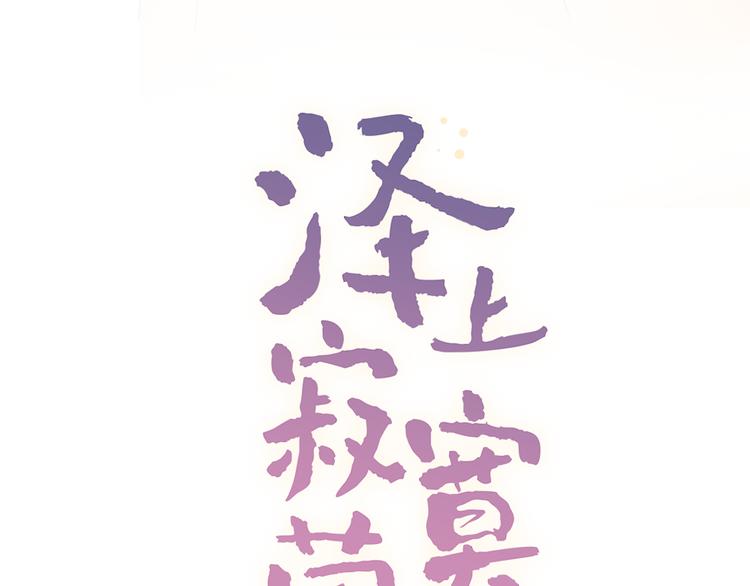 泽上
寂寞